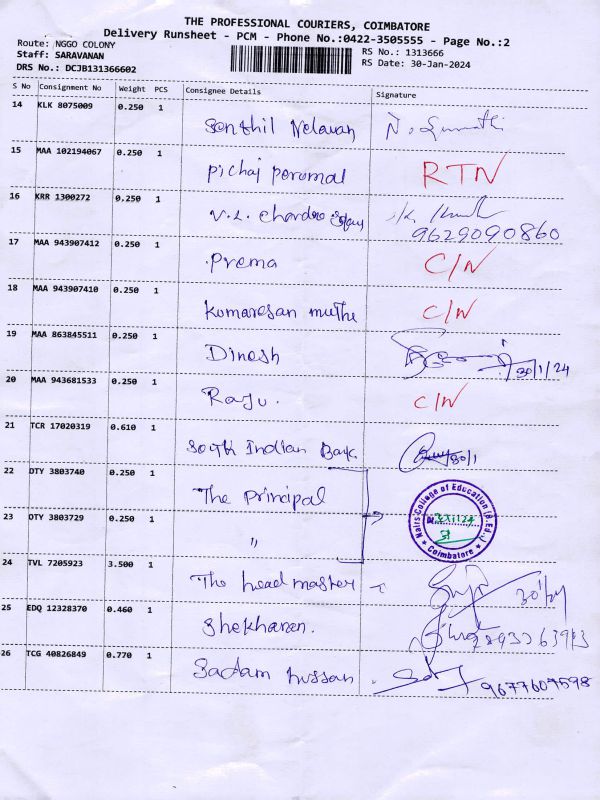 THE PROFESSIONAL COURIERS, COIMBATORE
Delivery Runsheet - PCM - Phone No.:0422-3505555 - Page No.:2
Route: NGGO COLONY
Staff: SARAVANAN
DRS No.: DCJB131366602
RS No.: 1313666
RS Date: 30-Jan-2024
S No Consignment No Weight PCS Consignee Details Signature
14 KLK 8075009 0.250 1
Senthil Velavan
15 MAA 102194067 0.250 1
pichai perumal RTN
16 KRR 1300272 0.250 1
V.L. Chandra
9629090860
17 MAA 943907412 0.250 1
Prema C/N
18 MAA 943907410 0.250 1
kumaresan muthu C/N
19 MAA 863845511 0.250 1
Dinesh 30/1/24
20 MAA 943681533 0.250 1
Raju. C/N
21 TCR 17020319 0.610 1
South Indian Bank 30/1
22 DTY 3803740 0.250 1
The Principal
23 DTY 3803729 0.250 1
"
Nairs College of Education (B.Ed.,)
Coimbatore
24 TVL 7205923 3.500 1
The head master
25 EDQ 12328370 0.460 1
Shekharan.
26 TCG 40826849 0.770 1
Sadam hussan 9677607598